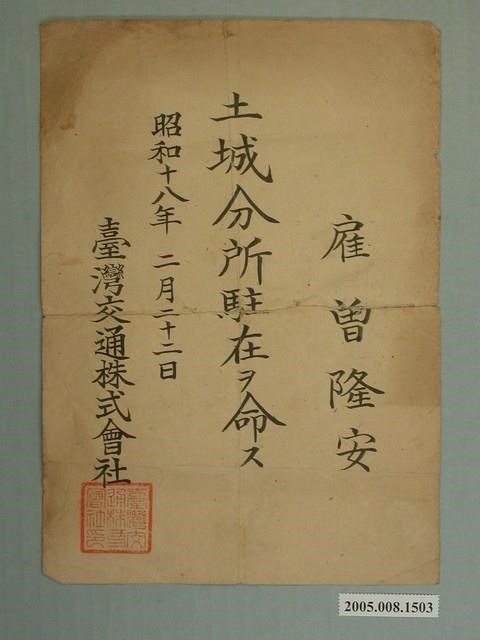 雇 曽隆安
土城分所駐在ヲ命ス
昭和十八年 二月二十二日
臺灣交通株式會社
臺灣交通株式會社印
2005.008.1503